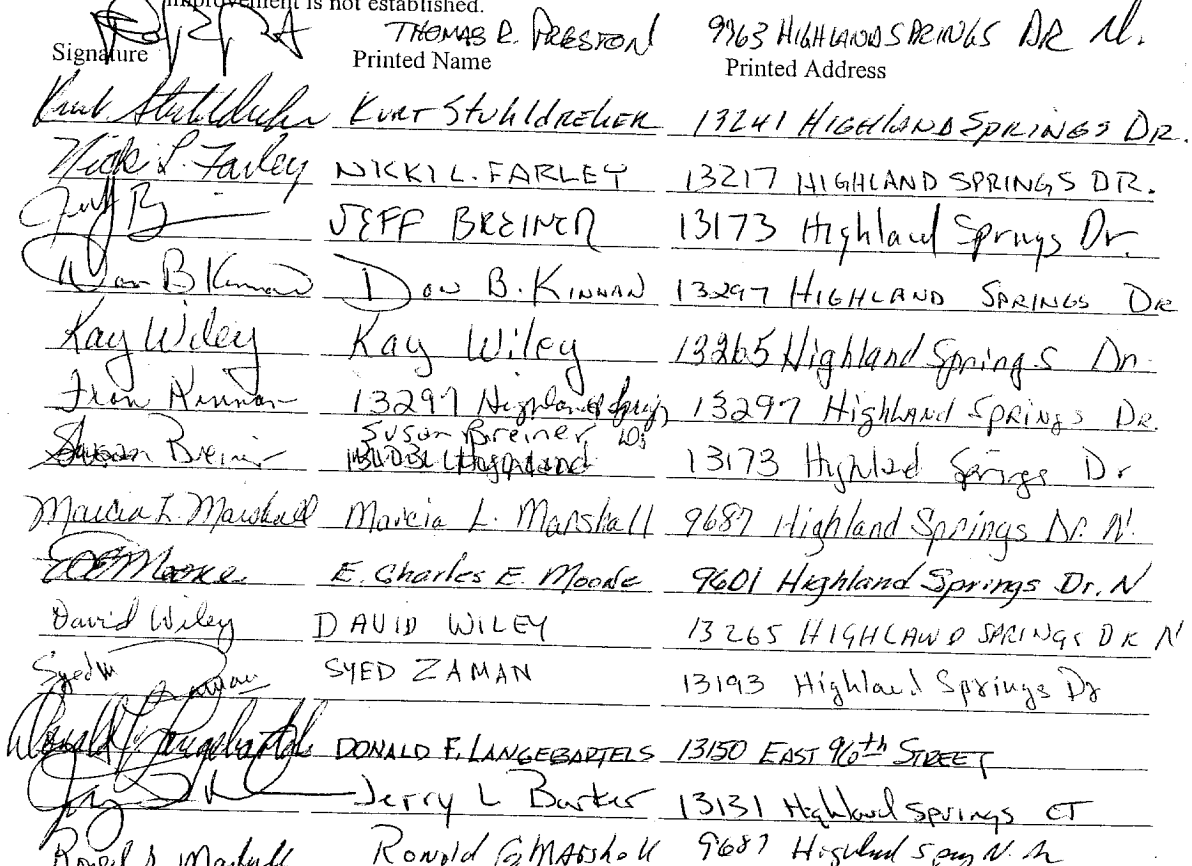 improvement is not established.
THOMAS R. PRESTON 9763 HIGHLAND SPRINGS DR N.
Signature Printed Name Printed Address
Kurt Stuhldreher KURT STUHLDREHER 13241 HIGHLAND SPRINGS DR.
Nicki L. Farley NICKI L. FARLEY 13217 HIGHLAND SPRINGS DR.
JEFF BREINER 13173 Highland Springs Dr.
Don B Kinnan DON B. KINNAN 13297 HIGHLAND SPRINGS DR
Kay Wiley Kay Wiley 13265 Highland Springs Dr.
Fran Kinnan 13297 Highland Springs 13297 Highland Springs Dr.
Susan Breiner
Susan Breiner 13173 Highland Springs Dr
Marcia L. Marshall Marcia L. Marshall 9687 Highland Springs Dr. N.
Moore E. Charles E. Moore 9601 Highland Springs Dr. N
David Wiley DAVID WILEY 13265 HIGHLAND SPRINGS DR N
Syed M Zaman SYED ZAMAN 13193 Highland Springs Dr
Donald F. Langebartels DONALD F. LANGEBARTELS 13150 EAST 96th STREET
Jerry L Barker 13131 Highland Springs CT
Ronald G Marshall 9687 Highland